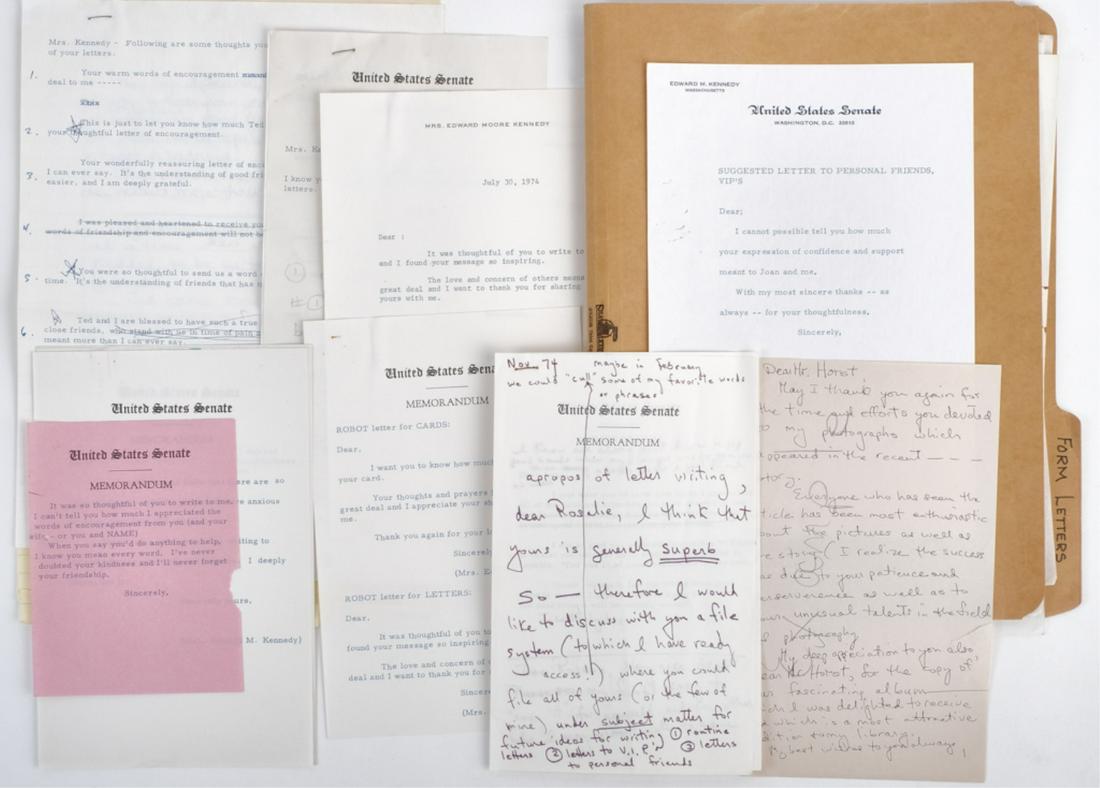 Mrs. Kennedy - Following are some thoughts
of your letters.
1. Your warm words of encouragement
deal to me -----
2. This is just to let you know how much Ted
your thoughtful letter of encouragement.
3. Your wonderfully reassuring letter of
I can ever say. It's the understanding of good
easier, and I am deeply grateful.
4. I was pleased and heartened to receive
words of friendship and encouragement will not
5. You were so thoughtful to send us a word
time. It's the understanding of friends that has
6. Ted and I are blessed to have such a true
close friends, who stand with us in time of pain
meant more than I can ever say.
United States Senate
Mrs.
I know
letters.
MRS. EDWARD MOORE KENNEDY
July 30, 1974
Dear :
It was thoughtful of you to write to
and I found your message so inspiring.
The love and concern of others means
great deal and I want to thank you for sharing
yours with me.
EDWARD M. KENNEDY
MASSACHUSETTS
United States Senate
WASHINGTON, D.C. 20510
SUGGESTED LETTER TO PERSONAL FRIENDS,
VIP'S
Dear;
I cannot possible tell you how much
your expression of confidence and support
meant to Joan and me.
With my most sincere thanks -- as
always -- for your thoughtfulness.
Sincerely,
FORM LETTERS
United States Senate
are so
anxious
I deeply
M. Kennedy)
United States Senate
MEMORANDUM
It was so thoughtful of you to write to me.
I can't tell you how much I appreciated the
words of encouragement from you (and your
wife - or you and NAME)
When you say you'd do anything to help,
I know you mean every word. I've never
doubted your kindness and I'll never forget
your friendship.
Sincerely,
United States
MEMORANDUM
ROBOT letter for CARDS:
Dear,
I want you to know how much
your card.
Your thoughts and prayers
great deal and I appreciate your
me.
Thank you again for your
Sincerely
(Mrs.
ROBOT letter for LETTERS:
Dear,
It was thoughtful of
found your message so inspiring.
The love and concern of
deal and I want to thank you for
(Mrs.
Nov. 74 maybe in February
we could "cull" some of my favorite words
or phrases
United States Senate
MEMORANDUM
apropos of letter writing,
dear Rosalie, I think that
yours is generally superb
So — therefore I would
like to discuss with you a file
system (to which I have ready
access!!) where you could
file all of yours (or the few of
mine) under subject matter for
future ideas for writing ① routine
letters ② letters to V.I.P's ③ letters
to personal friends
Dear Mr. Horst
May I thank you again for
the time and efforts you devoted
to my photographs which
appeared in the recent — — —
Everyone who has seen the
has been most enthusiastic
the pictures as well as
story (I realize the success
due to your patience and
perserverence as well as to
unusual talents in the field
of photography
My deep appreciation to you also,
dear Mr Horst, for the copy of
fascinating album
which I was delighted to receive
which is a most attractive
addition to my library.
My best wishes to you always,